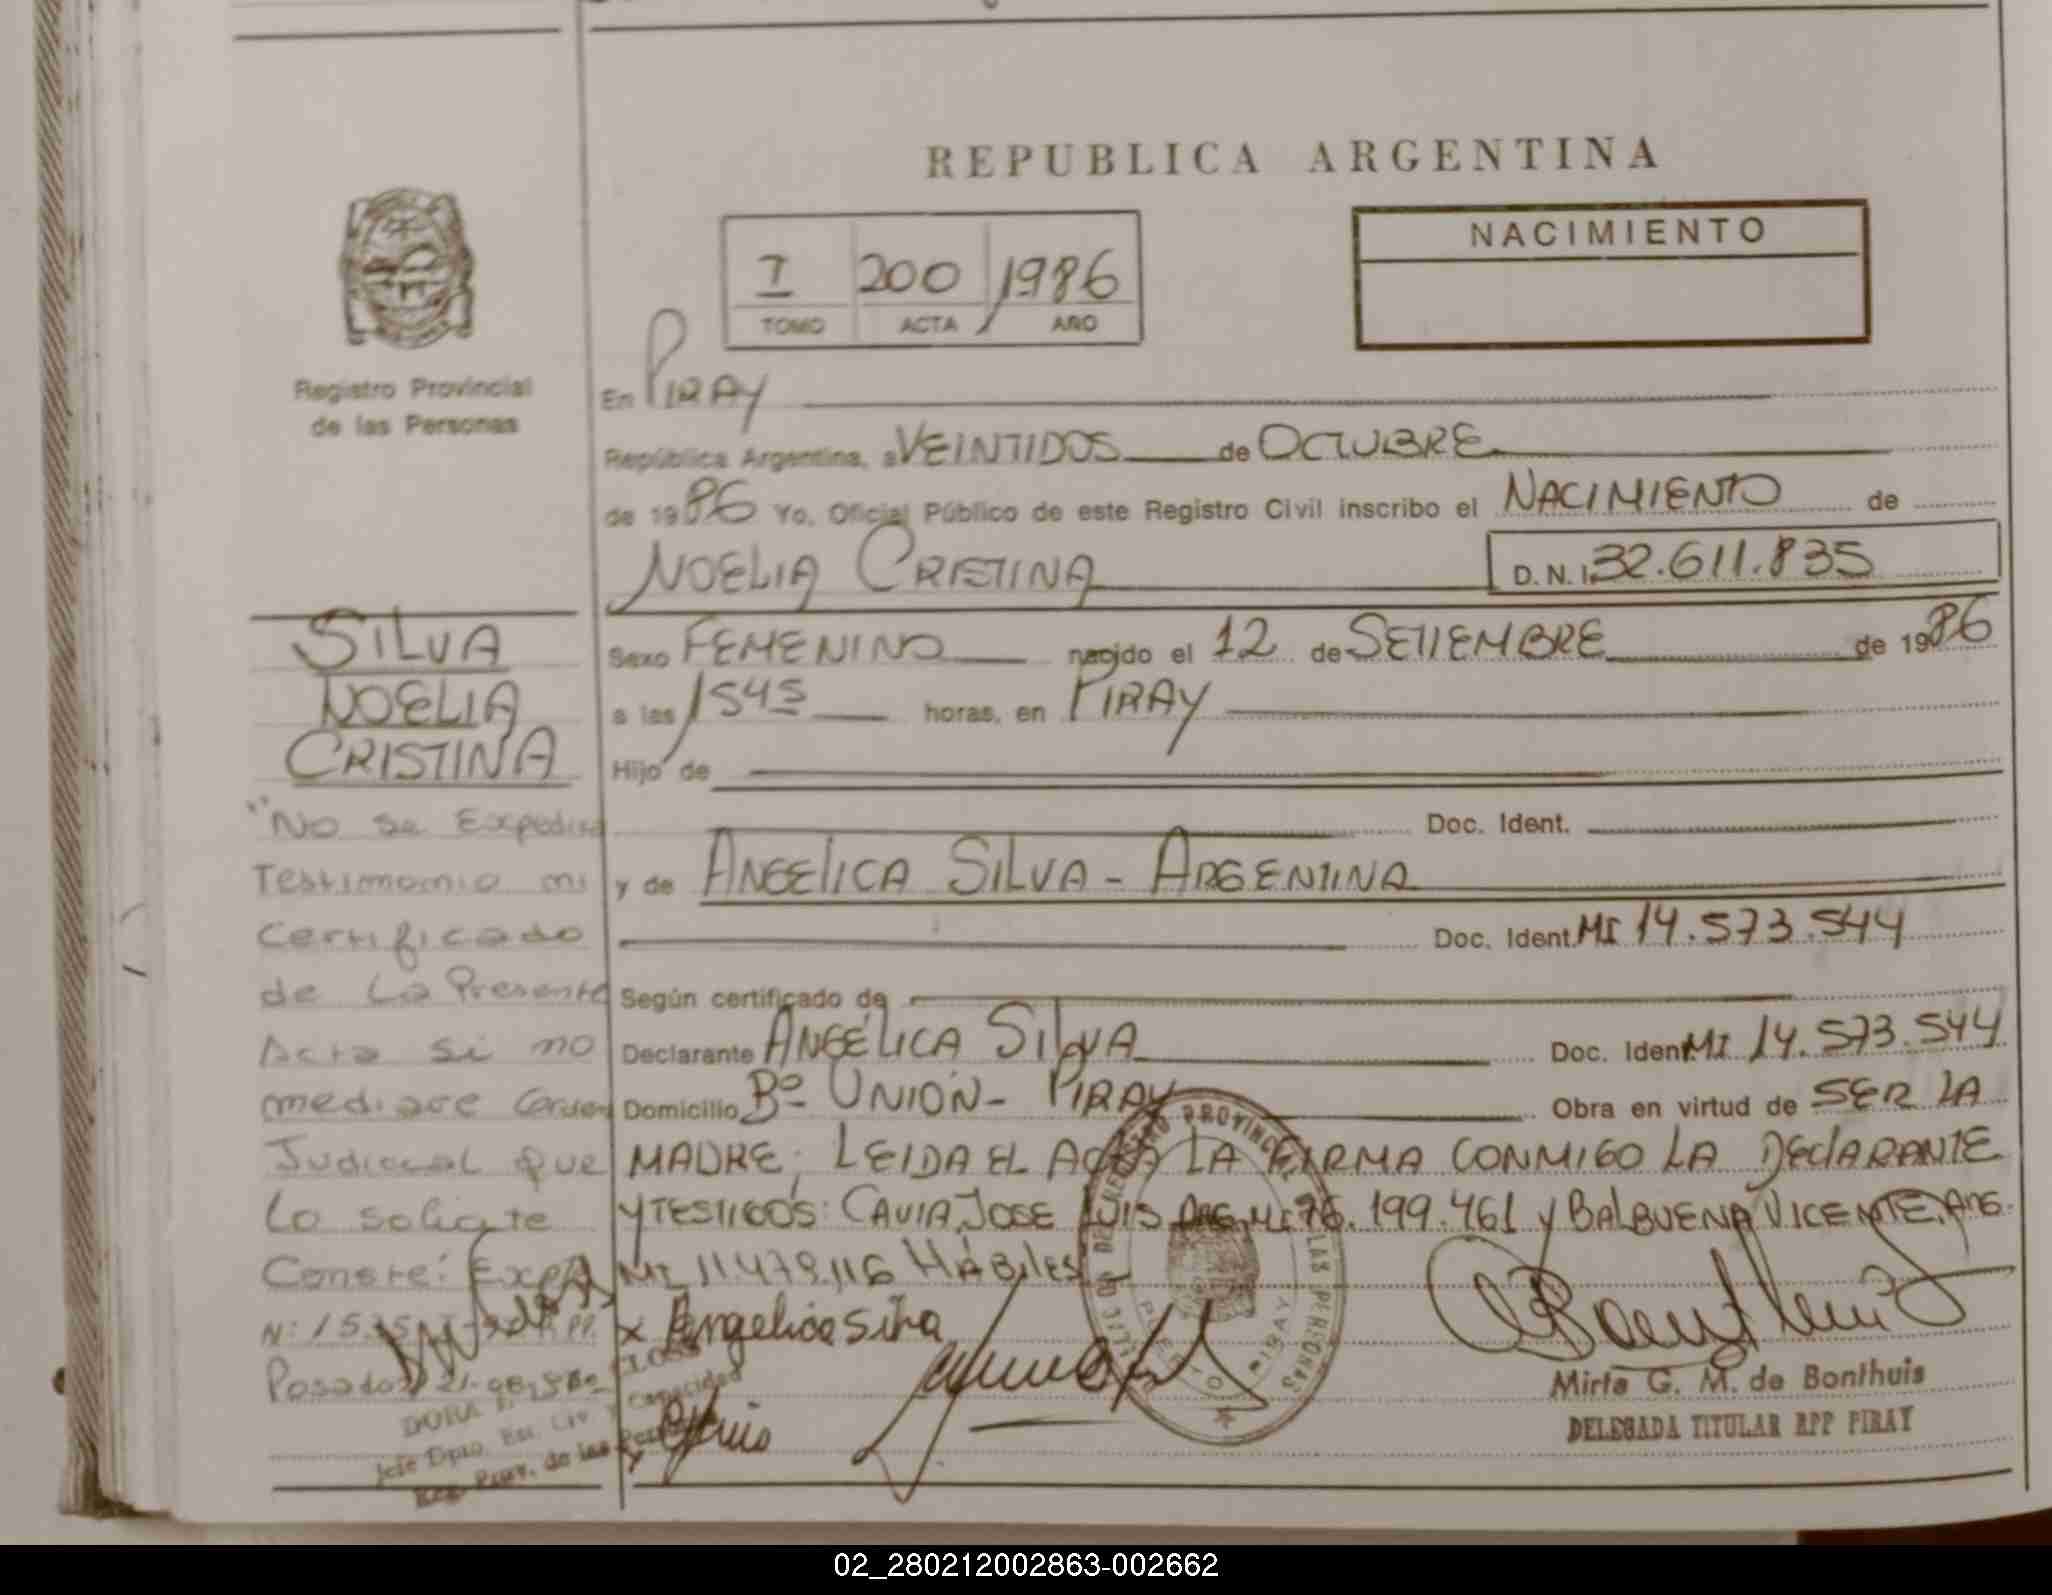 REPUBLICA ARGENTINA
NACIMIENTO
I 200 1986
TOMO ACTA AÑO
Registro Provincial
de las Personas
En PIRAY
República Argentina, a VEINTIDOS de OCTUBRE
de 1986 Yo, Oficial Público de este Registro Civil inscribo el NACIMIENTO de
NOELIA CRISTINA D.N.I. 32.611.835
SILVA
NOELIA
CRISTINA
Sexo FEMENINO nacido el 12 de SETIEMBRE de 1986
a las 1545 horas, en PIRAY
Hijo de
Doc. Ident.
y de ANGELICA SILVA - ARGENTINA
Doc. Ident. MI 14.573.544
Según certificado de
Declarante ANGÉLICA SILVA Doc. Ident. MI 14.573.544
Domicilio Bº UNIÓN - PIRAY Obra en virtud de SER LA
MADRE; LEIDA EL ACTA LA FIRMA CONMIGO LA DECLARANTE
Y TESTIGOS: CAVIA, JOSE LUIS ARG. MI 76.199.461 Y BALBUENA VICENTE, ARG.
MI 11.479.116 HÁBILES
"No se Expedira
Testimonio ni
Certificado
de La Presente
Acta si no
mediare Orden
Judicial que
Lo solicite
Conste: Expte
Pasadas
x Angelica Silva
REGISTRO PROVINCIAL DE LAS PERSONAS
PIRAY
Mirta G. M. de Bonthuis
DELEGADA TITULAR RPP PIRAY
DORA
Jefe Dpto. Est. Civ. y Capacidad
Reg. Prov. de las Personas
02_280212002863-002662